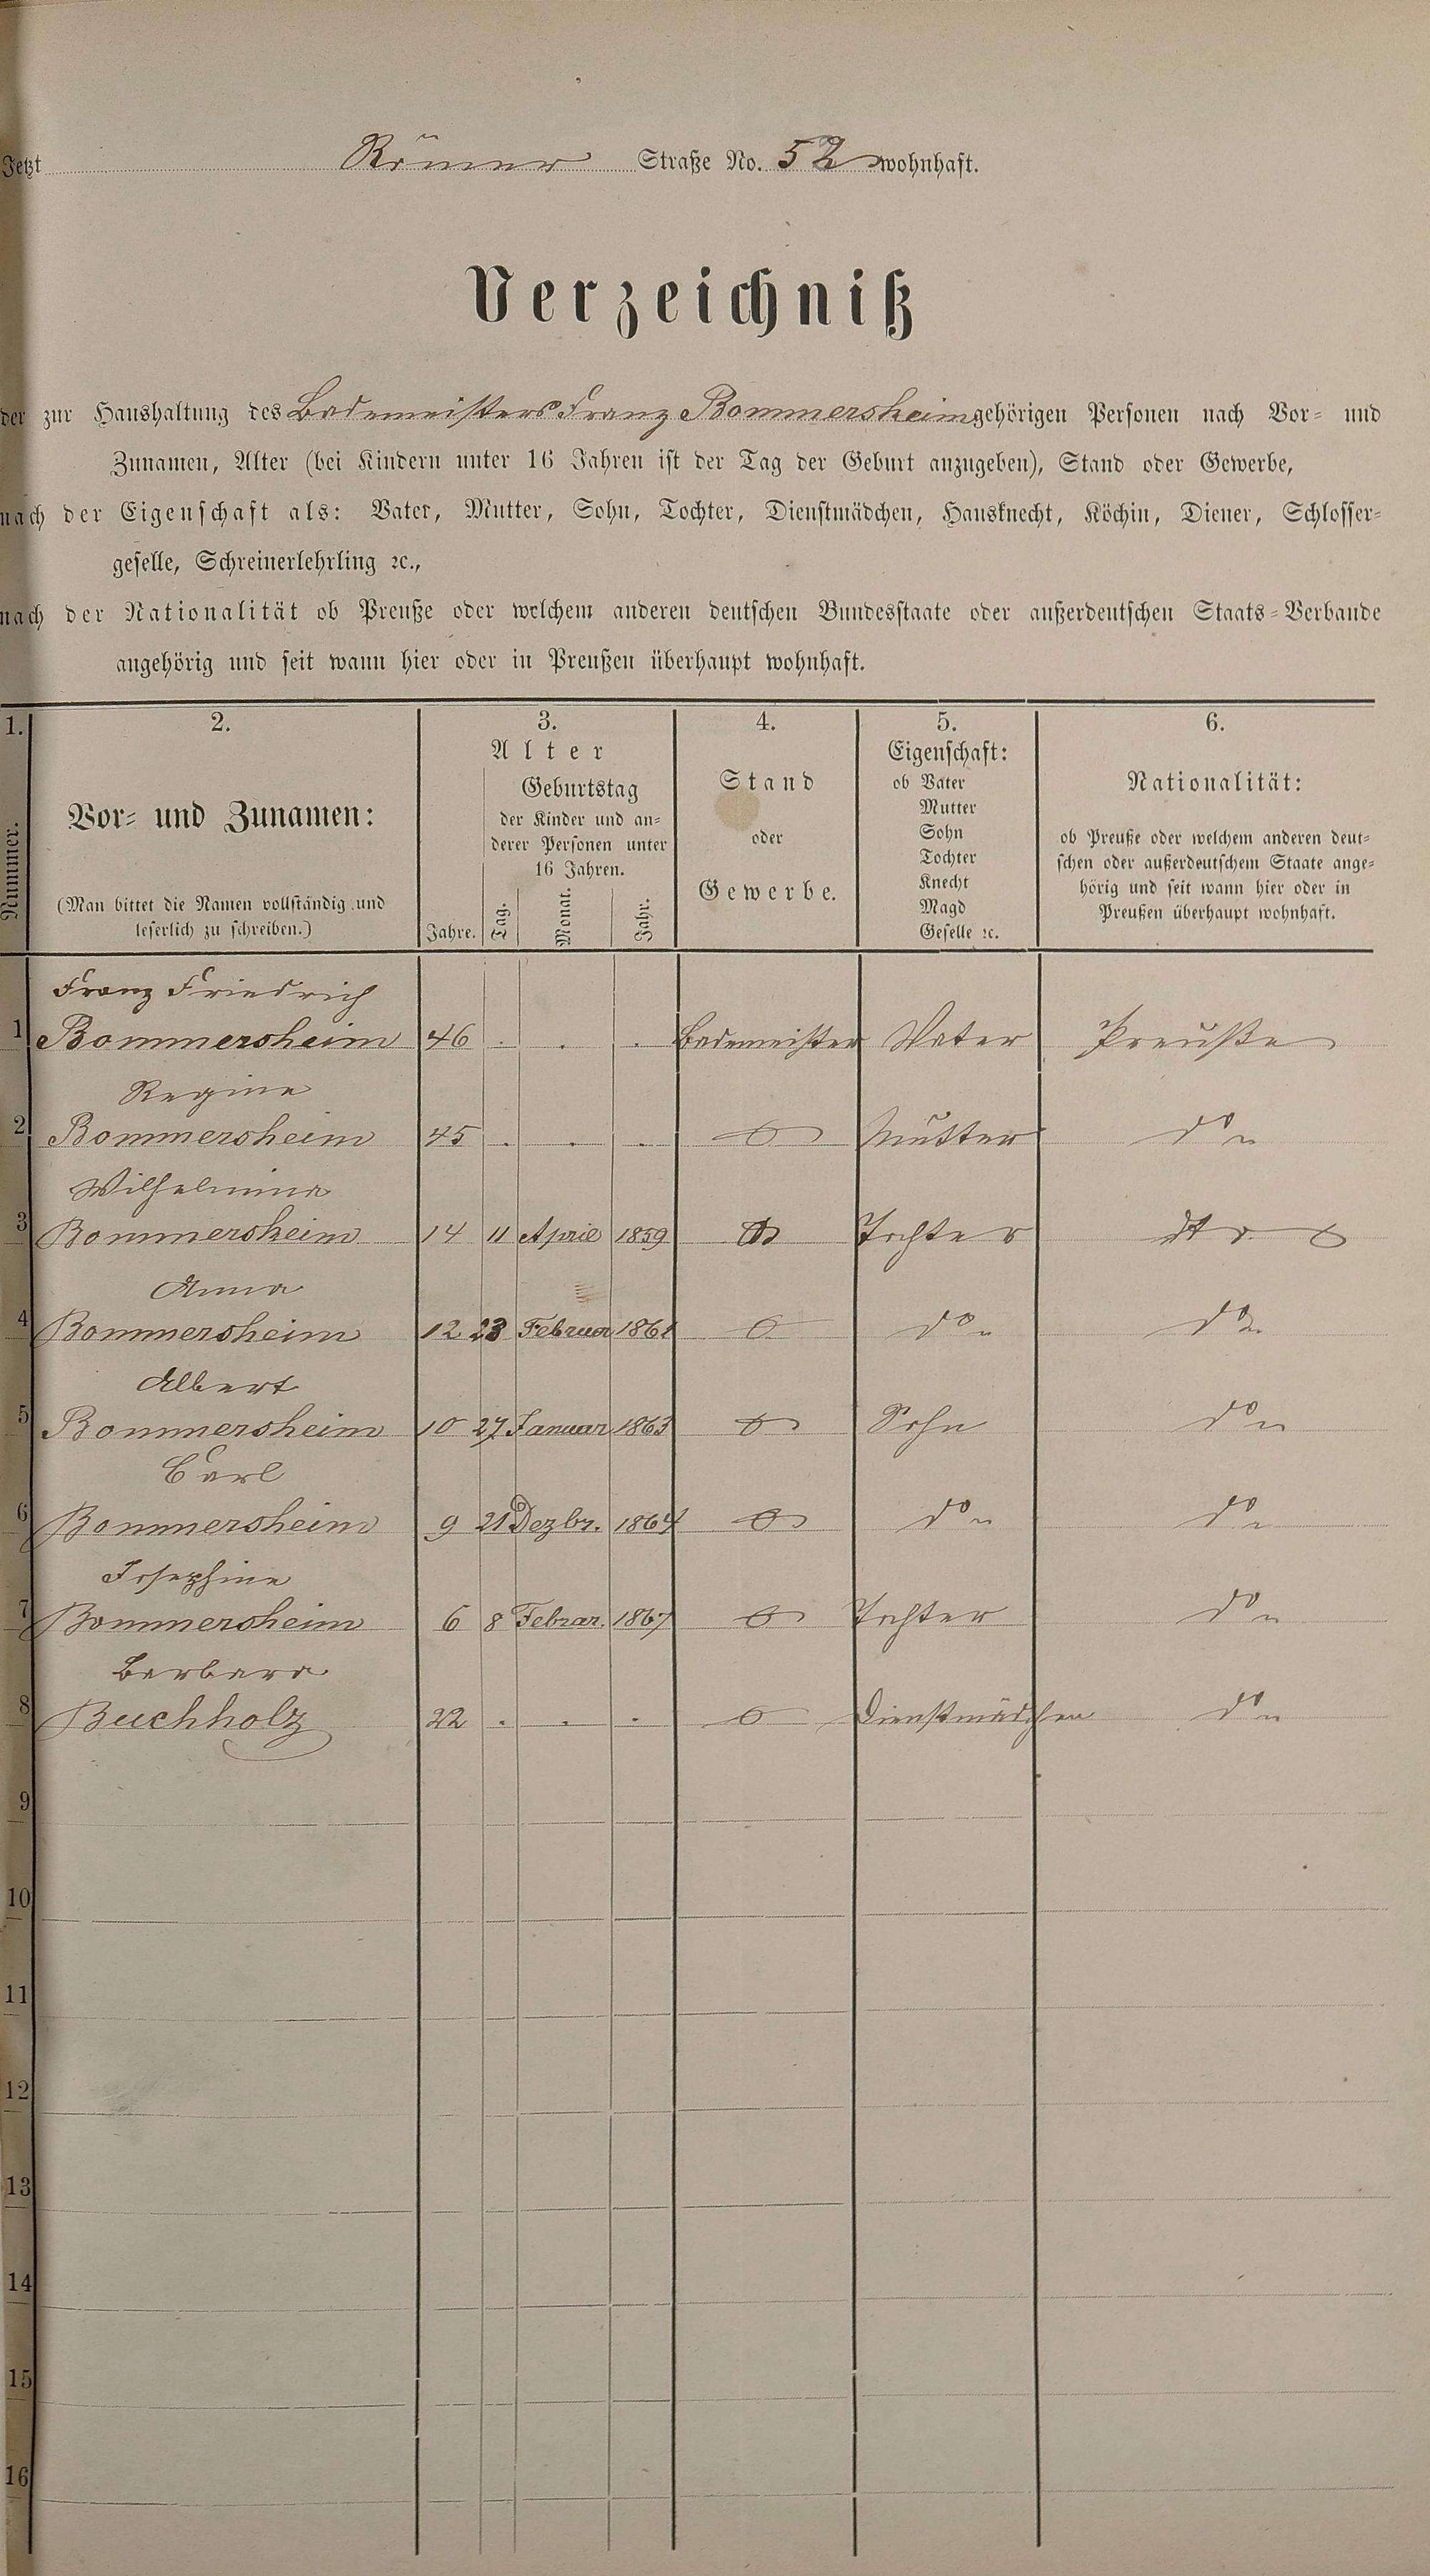 Jetzt Römer Straße No. 52 wohnhaft.
Verzeichniß
der zur Haushaltung des Bademeisters Franz Bommersheim gehörigen Personen nach Vor- und
Zunamen, Alter (bei Kindern unter 16 Jahren ist der Tag der Geburt anzugeben), Stand oder Gewerbe,
nach der Eigenschaft als: Vater, Mutter, Sohn, Tochter, Dienstmädchen, Hausknecht, Köchin, Diener, Schlosser-
geselle, Schreinerlehrling ꝛc.,
nach der Nationalität ob Preuße oder welchem anderen deutschen Bundesstaate oder außerdeutschen Staats-Verbande
angehörig und seit wann hier oder in Preußen überhaupt wohnhaft.
1. 2. 3. 4. 5. 6.
Nummer.
Vor- und Zunamen:
(Man bittet die Namen vollständig und
leserlich zu schreiben.)
Alter
Jahre.
Geburtstag
der Kinder und an-
derer Personen unter
16 Jahren.
Tag. Monat. Jahr.
Stand
oder
Gewerbe.
Eigenschaft:
ob Vater
Mutter
Sohn
Tochter
Knecht
Magd
Geselle ꝛc.
Nationalität:
ob Preuße oder welchem anderen deut-
schen oder außerdeutschem Staate ange-
hörig und seit wann hier oder in
Preußen überhaupt wohnhaft.
Franz Friedrich
1 Bommersheim 46 . . . Bademeister Vater Preuße
Regine
2 Bommersheim 45 . . . Mutter do
Wilhelmina
3 Bommersheim 14 11 April 1859 Tochter
Anna
4 Bommersheim 12 23 Februar 1861 do do
Albert
5 Bommersheim 10 27 Januar 1863 Sohn do
Carl
6 Bommersheim 9 21 Dezbr. 1864 do do
Josephine
7 Bommersheim 6 8 Febrar. 1867 Tochter do
Barbara
8 Buchholz 22 . . . Dienstmädchen do
9
10
11
12
13
14
15
16